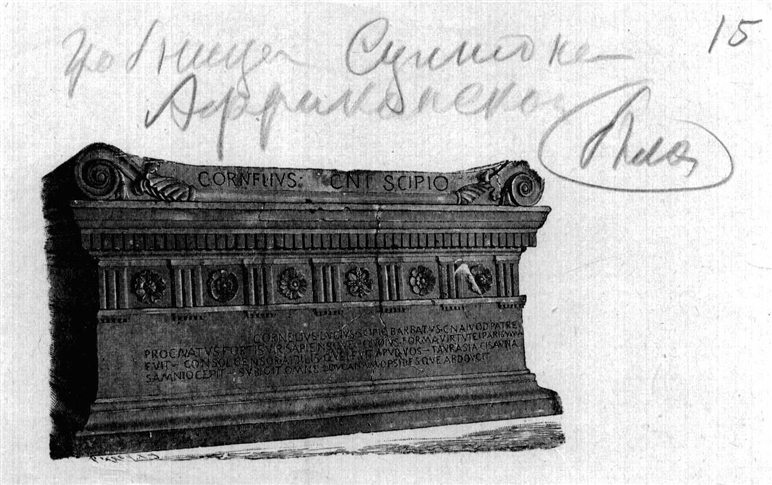 15
гробница Сципиона
Африканского
CORNELIVS· CN·F SCIPIO
CORNELIVS·LVCIVS·SCIPIO·BARBATVS·CNAIVOD·PATRE
PROGNATVS·FORTIS·VIR·SAPIENSQVE—QVOIVS·FORMA·VIRTVTEI·PARISVMA
FVIT—CONSOL CENSOR·AIDILIS·QVEI·FVIT·APVD·VOS—TAVRASIA·CISAVNA
SAMNIO·CEPIT—SVBIGIT·OMNE·LOVCANAM·OPSIDESQVE·ABDOVCIT